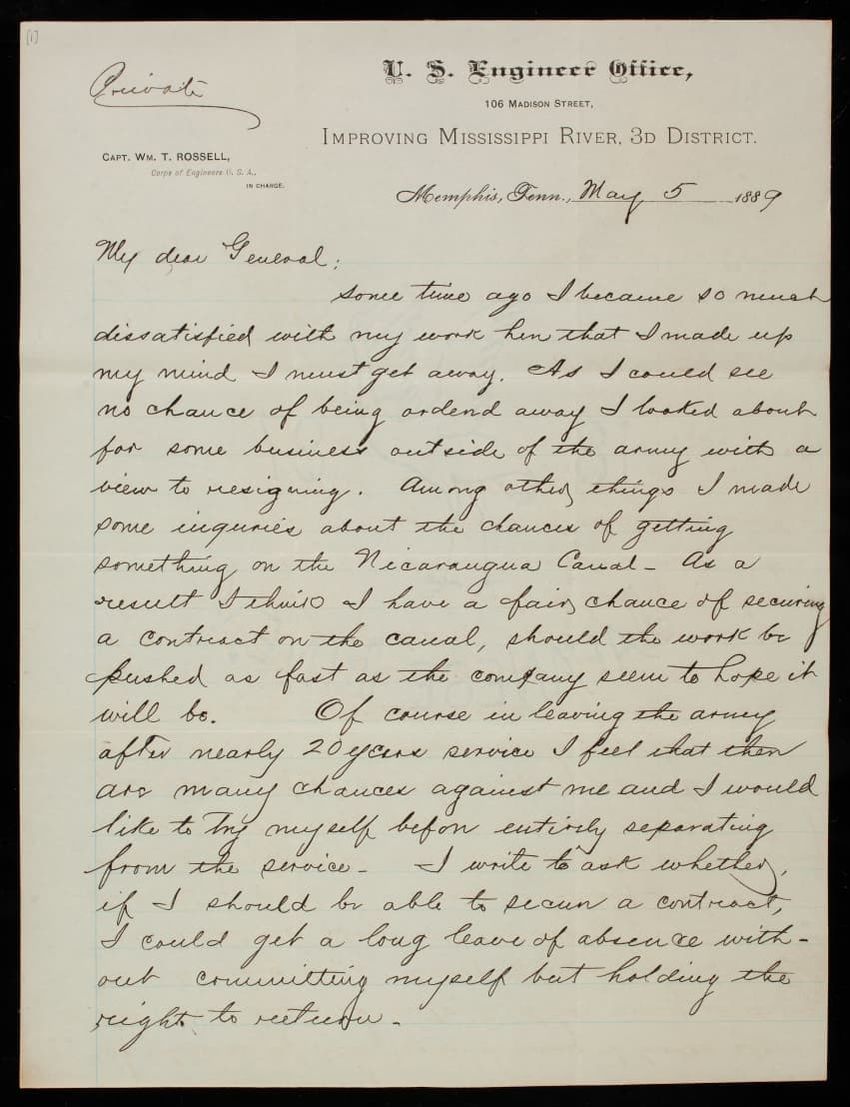 [1]
Private
U. S. Engineer Office,
106 Madison Street,
Improving Mississippi River, 3d District.
Capt. Wm. T. ROSSELL,
Corps of Engineers U. S. A.,
IN CHARGE.
Memphis, Tenn., May 5 1889
My dear General:
some time ago I became so much
dissatisfied with my work here that I made up
my mind I must get away. As I could see
no chance of being ordered away I looked about
for some business outside of the army with a
view to resigning. Among other things I made
some inquries about the chances of getting
something on the Nicarangua Canal - As a
result I think I have a fair chance of securing
a contract on the canal, should the work be
pushed as fast as the company seem to hope it
will be. Of course in leaving the army
after nearly 20 years service I feel that there
are many chances against me and I would
like to try myself before entirely separating
from the service - I write to ask whether,
if I should be able to secure a contract,
I could get a long leave of absence with-
out committing myself but holding the
right to return -